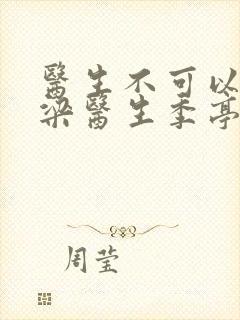 醫生不可以
梁醫生季亭
周莹